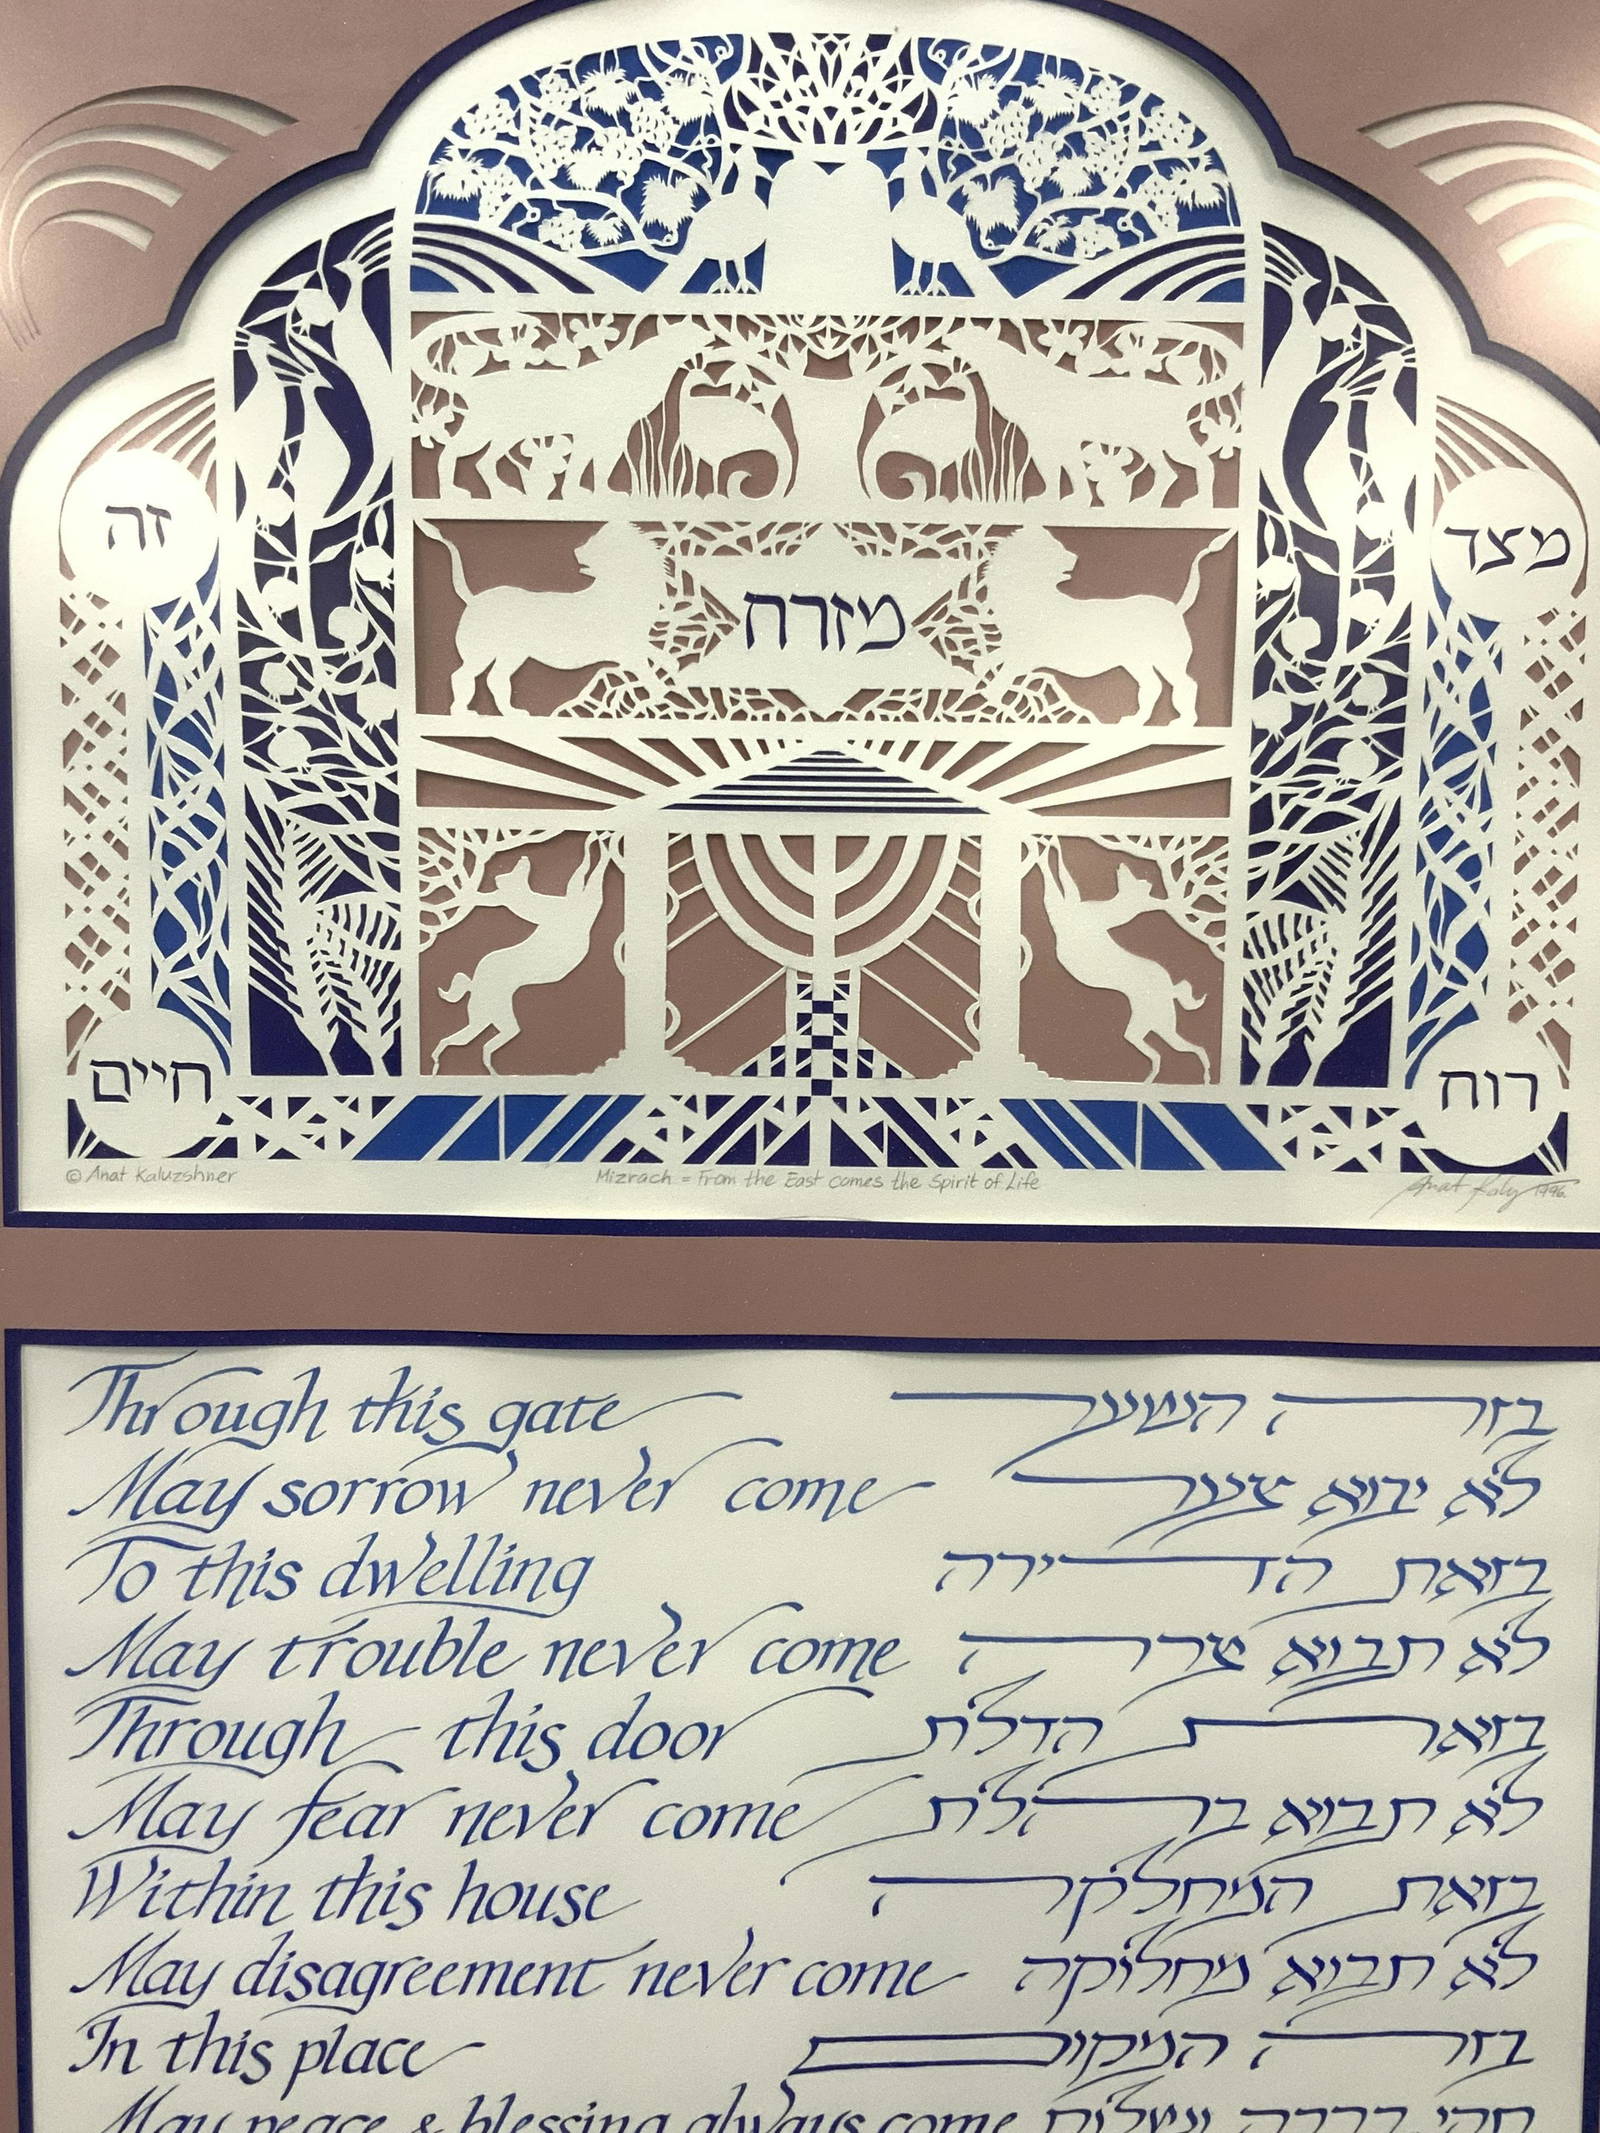 זה
מצד
מזרח
חיים
רוח
© Anat Kaluzshner
Mizrach = From the East comes the Spirit of Life
1996
Through this gate
בזה השער
May sorrow never come
לא יבוא צער
To this dwelling
בזאת הדירה
May trouble never come
לא תבוא צרה
Through this door
בזאת הדלת
May fear never come
לא תבוא בהלת
Within this house
בזאת המחלקה
May disagreement never come
לא תבוא מחלוקה
In this place
בזה המקום
May peace & blessing always come